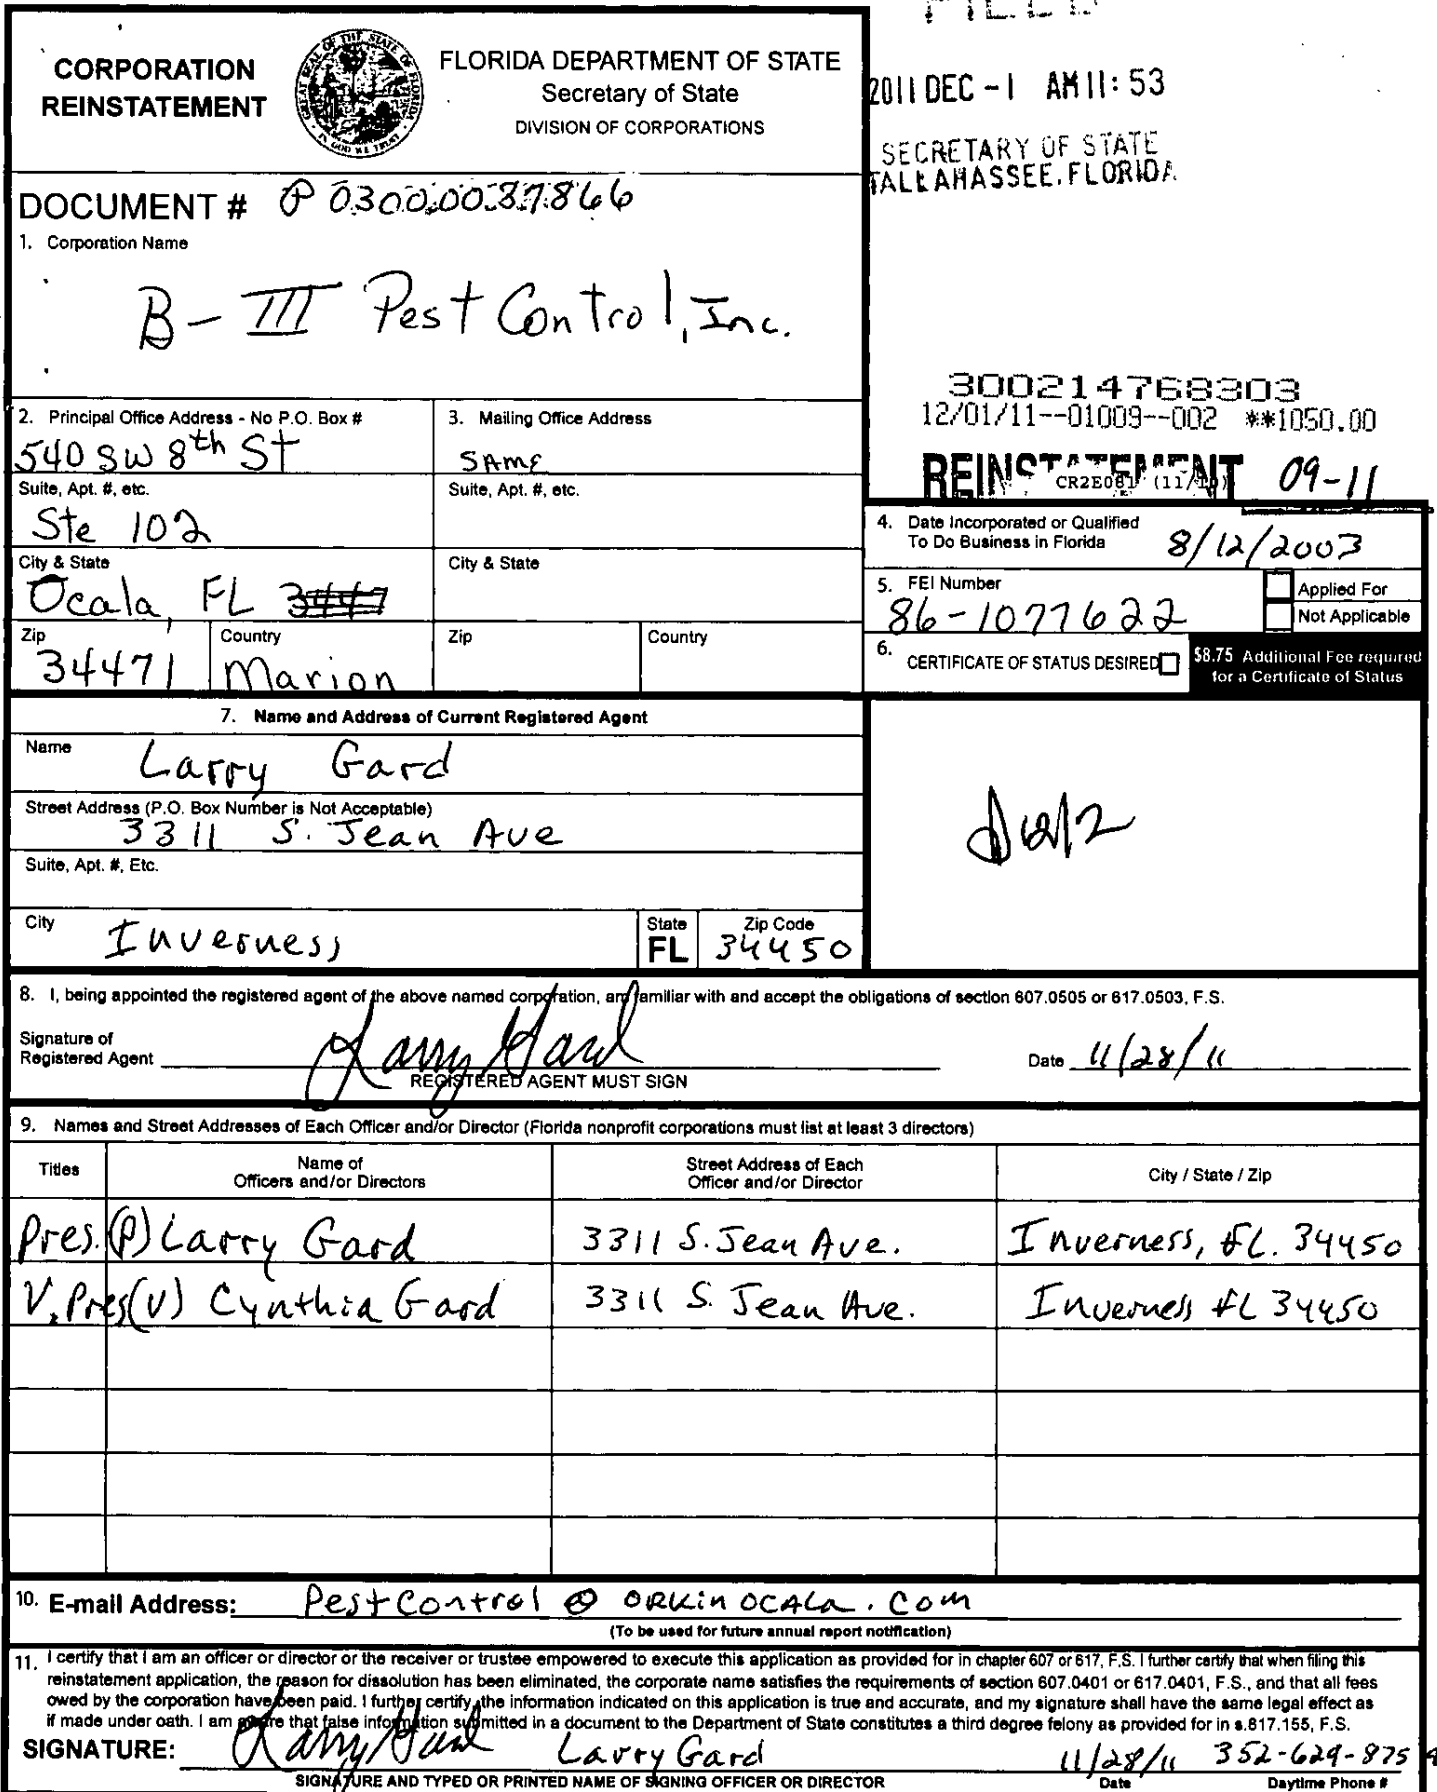 FILED
CORPORATION
REINSTATEMENT
FLORIDA DEPARTMENT OF STATE
Secretary of State
DIVISION OF CORPORATIONS
2011 DEC -1 AM 11:53
SECRETARY OF STATE
TALLAHASSEE, FLORIDA
DOCUMENT # P03000087866
1. Corporation Name
B-III Pest Control, Inc.
300214768303
12/01/11--01009--002 **1050.00
REINSTATEMENT 09-11
CR2E081 (11/10)
2. Principal Office Address - No P.O. Box #
540 SW 8th St
3. Mailing Office Address
SAME
Suite, Apt. #, etc.
Ste 102
Suite, Apt. #, etc.
City & State
Ocala, FL
City & State
Zip
34471
Country
Marion
Zip
Country
4. Date Incorporated or Qualified
To Do Business in Florida 8/12/2003
5. FEI Number
86-1077622
Applied For
Not Applicable
6. CERTIFICATE OF STATUS DESIRED
$8.75 Additional Fee required
for a Certificate of Status
7. Name and Address of Current Registered Agent
Name
Larry Gard
Street Address (P.O. Box Number is Not Acceptable)
3311 S. Jean Ave
Suite, Apt. #, Etc.
City
Inverness
State
FL
Zip Code
34450
8. I, being appointed the registered agent of the above named corporation, am familiar with and accept the obligations of section 607.0505 or 617.0503, F.S.
Signature of
Registered Agent Larry Gard
Date 11/28/11
REGISTERED AGENT MUST SIGN
9. Names and Street Addresses of Each Officer and/or Director (Florida nonprofit corporations must list at least 3 directors)
Titles
Name of
Officers and/or Directors
Street Address of Each
Officer and/or Director
City / State / Zip
Pres. (P) Larry Gard 3311 S. Jean Ave. Inverness, FL. 34450
V. Pres (V) Cynthia Gard 3311 S. Jean Ave. Inverness FL 34450
10. E-mail Address: PestControl @ ORKINOCALA.Com
(To be used for future annual report notification)
11. I certify that I am an officer or director or the receiver or trustee empowered to execute this application as provided for in chapter 607 or 617, F.S. I further certify that when filing this
reinstatement application, the reason for dissolution has been eliminated, the corporate name satisfies the requirements of section 607.0401 or 617.0401, F.S., and that all fees
owed by the corporation have been paid. I further certify, the information indicated on this application is true and accurate, and my signature shall have the same legal effect as
if made under oath. I am aware that false information submitted in a document to the Department of State constitutes a third degree felony as provided for in s.817.155, F.S.
SIGNATURE: Larry Gard Larry Gard 11/28/11 352-629-875
SIGNATURE AND TYPED OR PRINTED NAME OF SIGNING OFFICER OR DIRECTOR
Date
Daytime Phone #